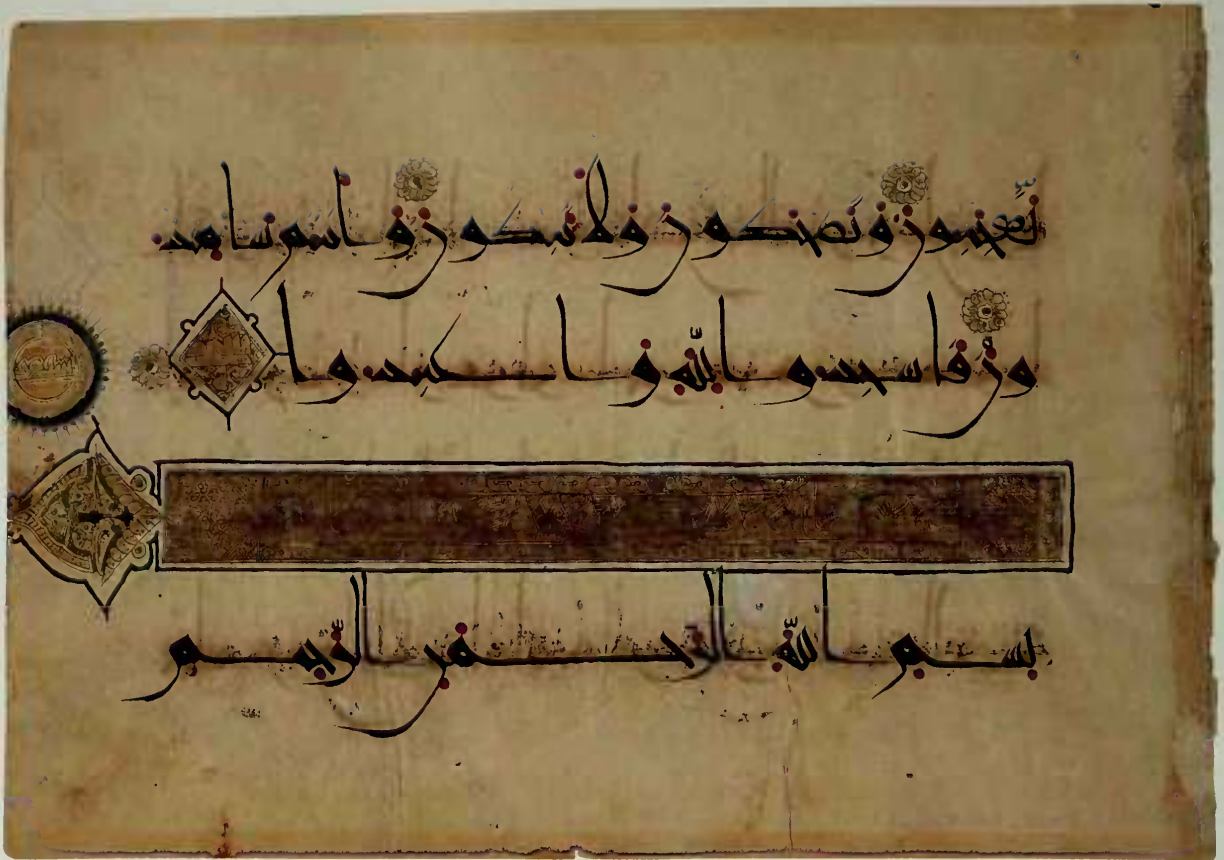 تعجبون وتضحكون ولا تبكون وأنتم سامد
ون فاسجدوا لله واعبدوا
بسم الله الرحمن الرحيم